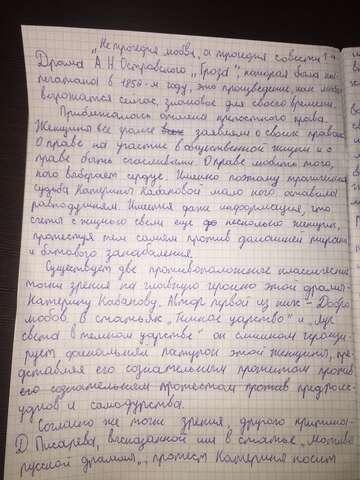 "Не трагедия любви, а трагедия совести"
Драма А. Н. Островского "Гроза", которая была
в 1859-м году, это произведение, как
самое, злободне для своего времени.
Приближалась отмена крепостного права.
Женщины все громче заявляли о своих правах.
О праве на участие в общественной жизни и о
праве быть счастливыми. О праве любить того,
кого выберет сердце. Именно поэтому трагическая
судьба Катерины Кабановой мало кого оставила
равнодушным. Имеется даже информация, что
счёты с жизнью свели ещё несколько женщин,
протестуя тем самым против домашней тирании
и бытового закабаления.
Существует две противоположные классические
точки зрения на главную героиню этой драмы -
Катерину Кабанову. Автор первой из них - Добро
любов. В статьях "Тёмное царство" и "Луч
света в тёмном царстве" он слишком герои
рует финальный поступок этой женщины, пре
дставляя его сознательным протестом против
его сознательным протестом против предрассу
удков и самодурства.
Согласно же точки зрения, другого критика -
Д Писарева, высказанной им в статье "Мотивы
русской драмы", протест Катерины носит